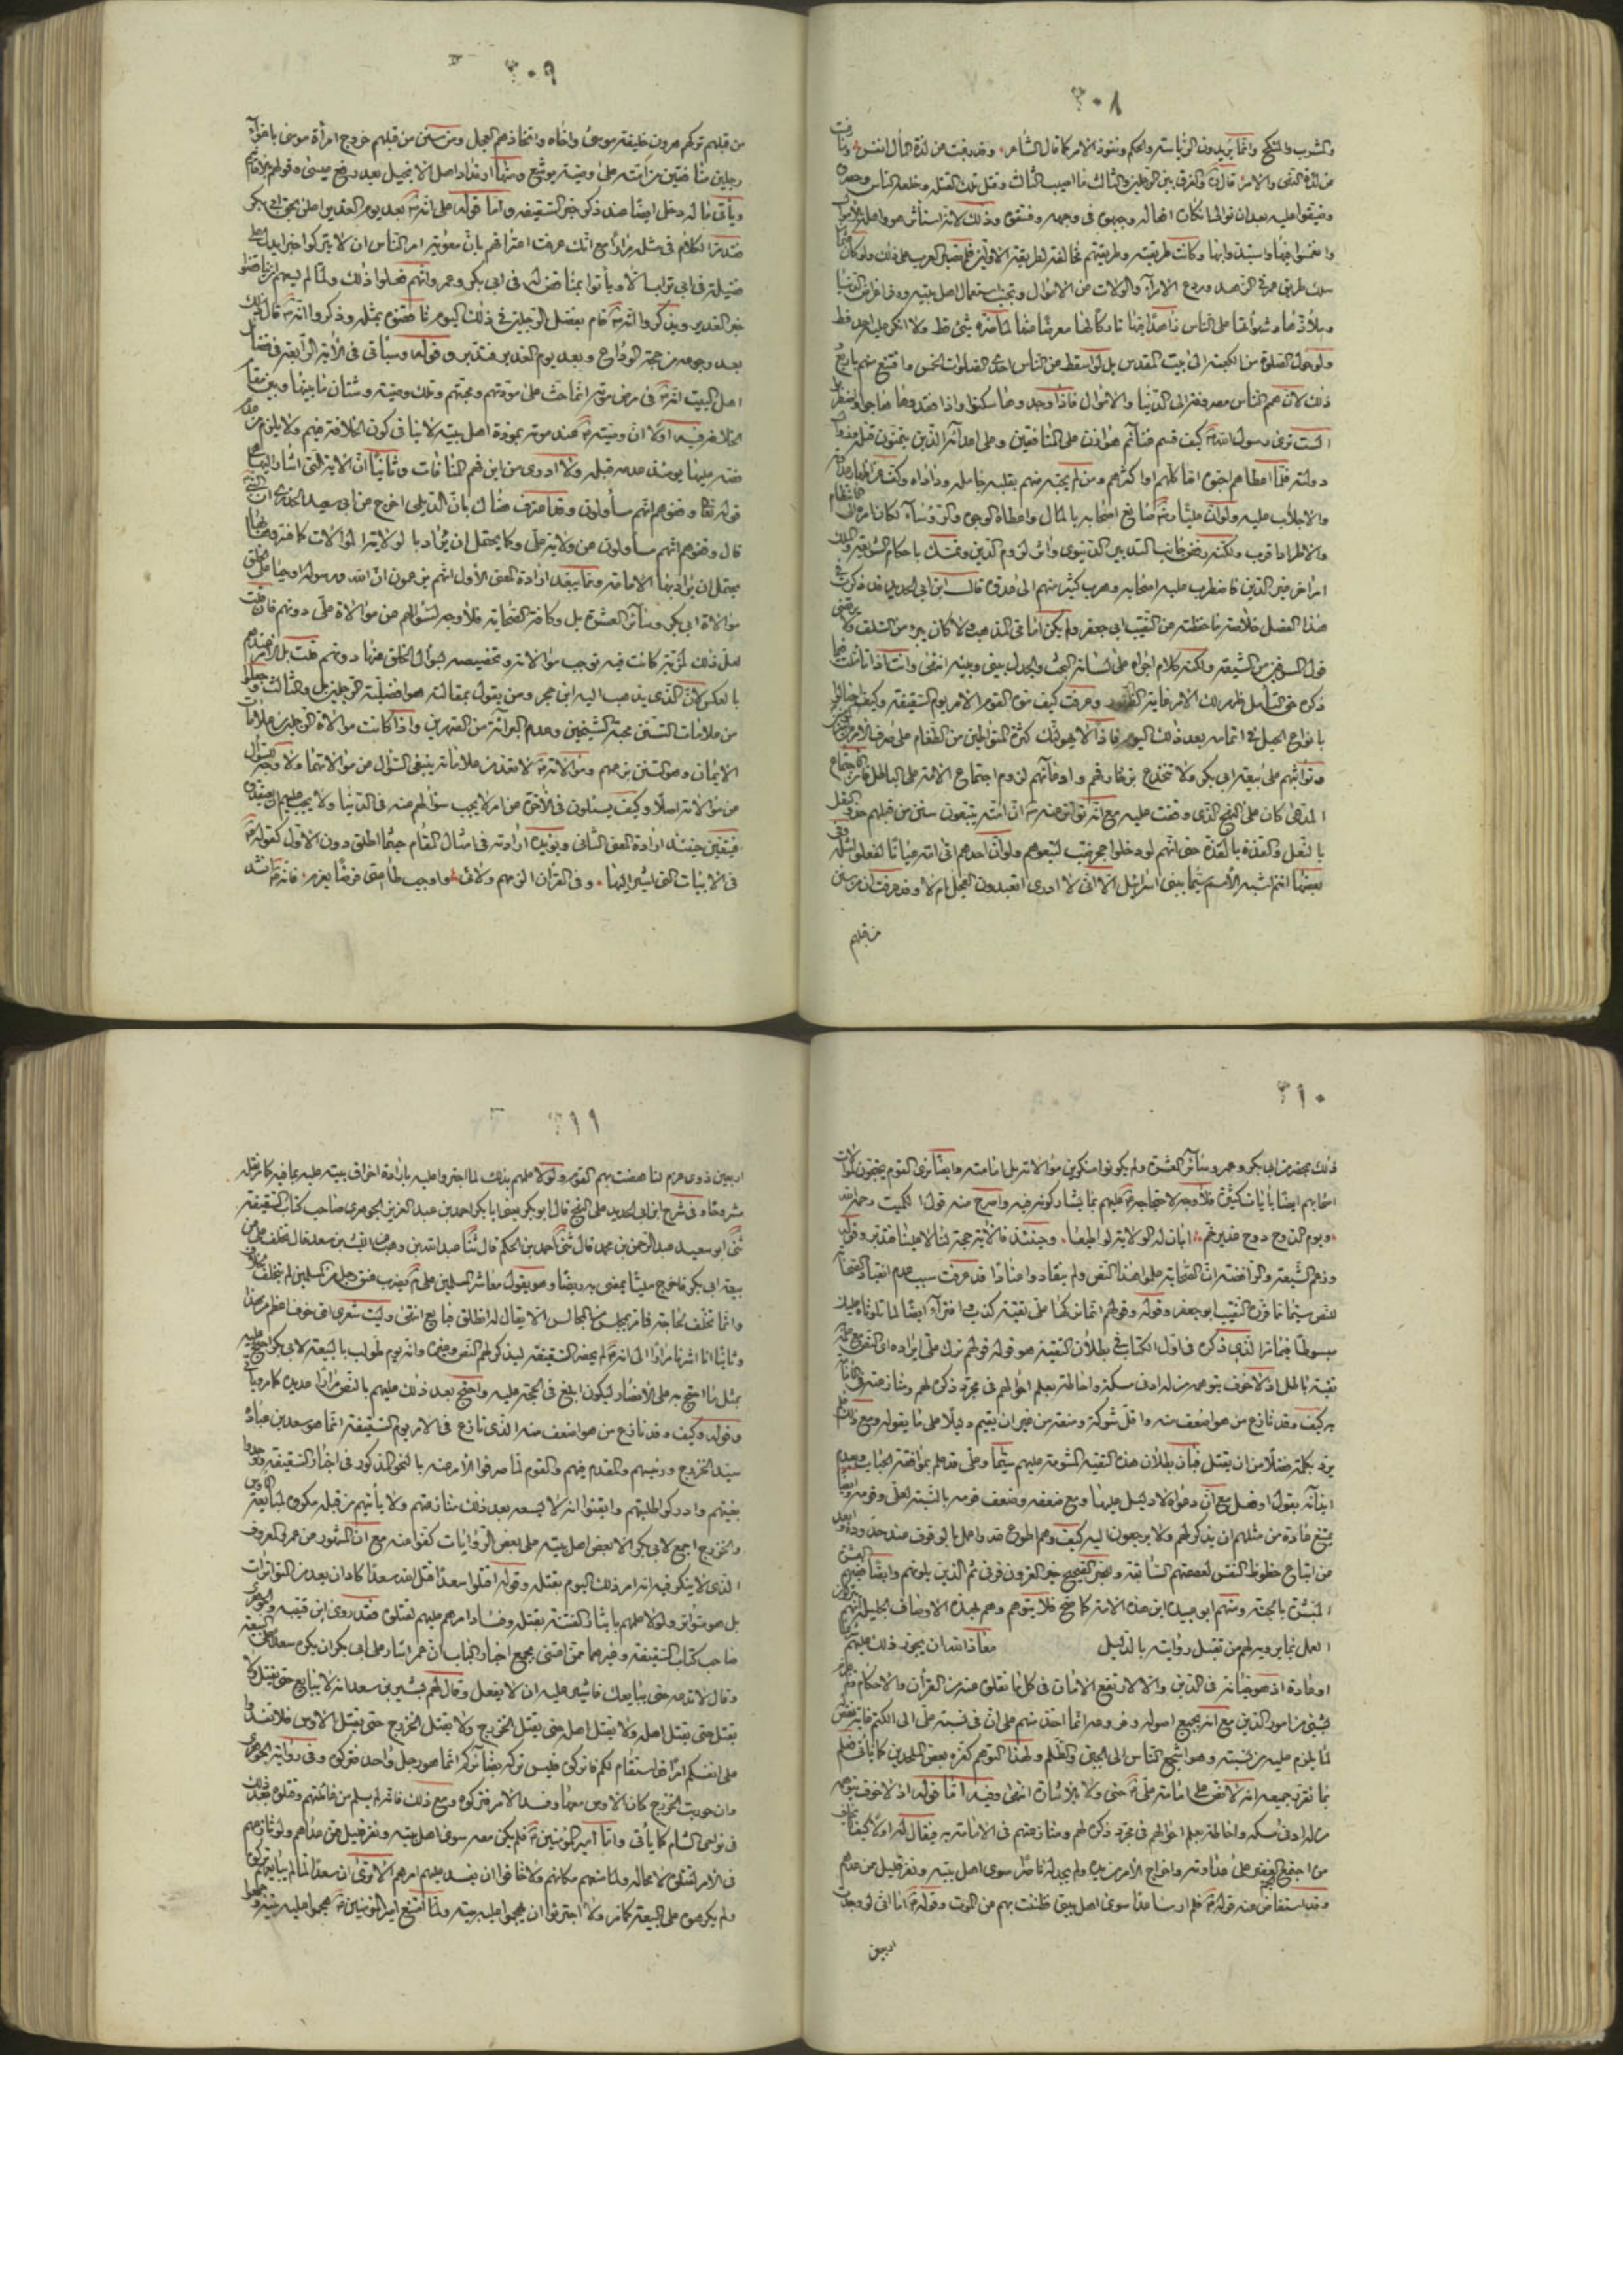 ٣٠٨
والمشرب والمنكح وانما يريدون الرياسة والحكم ونفوذ الامر كما قال الشاعر وقد رغبت عن لذة المال انفس وما رغبت
عن لذة النهى والامر قال والفرق بين الرجلين والثالث ما اصيب الثالث وقتل تلك القتلة وخلعه الناس وحصروه
وضيقوا عليه بعد ان توالى انكار افعاله وجبهوه في وجهه وفسقوه وذلك لانه استأثر هو واهله بالاموال
وانغمسوا فيها واستبدوا بها وكانت طريقته وطريقتهم مخالفة لطريقة الاولين فلم تصبر العرب على ذلك ولو كان عثمان
سلك طريق عمر في الزهد وردع الامراء والولاة عن الاموال وتجنب استعمال اهل بيته ووفر اعراض الدنيا
وملاذها وشهواتها على الناس زاهدا فيها تاركا لها معرضا عنها لما ضره شيء قط ولا انكر عليه احد قط
ولو حول الصلوة من الكعبة الى بيت المقدس بل لو اسقط عن الناس احدى الصلوات الخمس واقتنع منهم باربع و
ذلك لان همم الناس مصروفة الى الدنيا والاموال فاذا وجدوها سكتوا واذا فقدوها هاجوا واضطربوا
الست ترى رسول الله كيف قسم غنائم هوازن على المنافقين وعلى اعدائه الذين يتمنون قتله وموته وزوال
دولته فلما اعطاهم احبوه اما كلهم او اكثرهم ومن لم يحبه منهم بقلبه جامله وداراه وكف عن اظهار عداوته
والاجلاب عليه ولو ان عليا صانع اصحابه بالمال واعطاه الوجوه والرؤساء لكان امره الى الانتظام
والاطراد اقرب ولكنه رفض جانب التدبير الدنيوى واثر لزوم الدين وتمسك باحكام الشريعة والملك
امر اخر غير الدين فاضطرب عليه اصحابه وهرب كثير منهم الى عدوه قال ابن ابي الحديد قد ذكرت في
هذا الفصل خلاصة ما حفظته عن النقيب ابي جعفر ولم يكن امامى المذهب ولا كان يبرء من السلف ولا يرتضى
قول المسرفين من الشيعة ولكنه كلام اجراه على لسانه البحث والجدل بينى وبينه انتهى وانت اذا تأملت ما
ذكره حق التأمل ظهر لك الامر غاية الظهور وعرفت كيف نوى القوم الامر يوم السقيفة وكيف احتالوا
بانواع الحيل في اتمامه بعد ذلك اليوم فاذا لا يهولنك كثرة المتواطئين من الطغام على صرف الامر عن
وتواثبهم على بيعة ابي بكر ولا تنخدع بزخارفهم وادعائهم لزوم اجتماع الامة على الباطل فان الاجتماع
المدعى كان على النهج الذى وقفت عليه مع انه تواتر عنه ان امته يتبعون سنن من قبلهم حذو النعل
بالنعل والقذة بالقذة حتى انهم لو دخلوا جحر ضب لتبعوهم ولو ان احدهم اتى امه عيانا لفعلوا مثله وفي
بعضها انتم اشبه الأمم سيما ببنى اسرائيل الا انى لا ادرى اتعبدون العجل ام لا وقد عرفت ان من سنن
من قبلهم
٣٠٩
من قبلهم تركهم هرون خليفة موسى واخاه واتخاذهم العجل ومن سنن من قبلهم خروج امرأة موسى باغواء
رجلين منافقين من امته على وصيه يوشع ومنها ارتداد اهل الانجيل بعد رفع عيسى وقولهم بالاقانيم
ويأتى ما له دخل ايضا عند ذكر خبر السقيفة واما قوله على انه بعد يوم الغدير اعلن بحق ابي بكر
فقد مر الكلام في مثله مرارا مع انك عرفت اعترافهم بان معوية امر الناس ان لا يتركوا خبرا يدل على
فضيلة في ابي تراب الا ويأتوا بمناقض له في ابي بكر وعمر وانهم فعلوا ذلك ولما لم يسعهم ان يناقضوا
خبر الغدير ويذكروا انه قام بفضل الرجلين في ذلك اليوم ناقضوه بمثله وذكروا انه قال ذلك
بعد رجوعه من حجة الوداع وبعد يوم الغدير فتدبر قوله وسيأتى في الآية الرابعة في فضائل
اهل البيت انه في مرض موته انما حث على مودتهم ومحبتهم وتلك وصية وشتان ما بينها وبين مقام
الخلافة فيه اولا ان وصيته عند موته بمودة اهل بيته لا ينافى كون الخلافة فيهم ولا يلزم من
حثه عليها يومئذ عدمه قبله ولا ادرى من اين فهم المنافاة وثانيا ان الاية التى اشار اليها هى
قوله تعا وقفوهم انهم مسؤلون وقد اعترف هناك بان الديلمى اخرج عن ابي سعيد الخدرى ان النبى
قال وقفوهم انهم مسؤلون عن ولاية على وكما يحتمل ان يراد بالولاية الموالات كما فعرفها هنا
يحتمل ان يراد بها الامامة ومما يبعد ارادة المعنى الأول انهم يزعمون ان الله ورسوله اوجبا على الخلق
موالاة ابي بكر وسائر العشرة بل وكافة الصحابة فلا وجه لسؤالهم عن موالاة على دونهم فان قلت
لعل ذلك لمزية كانت فيه توجب موالاته وتخصيصه بسؤال الخلق عنها دونهم قلت بل الامر عندهم
بالعكس لان الذى يذهب اليه ابن حجر ومن يقول بمقالته هو افضلية الرجلين بل والثالث وجعلوا
من علامات التسنن محبة الشيخين وعدم البراءة من الصهرين واذا كانت موالاة الرجلين علامات
الايمان وهو التسنن بزعمهم وموالاته لا تعد من علاماته ينبغى السؤال عن موالاتهما ولا وجه للسؤال
عن موالاته اصلا وكيف يسئلون في الأخرى عن امر لا يجب سؤالهم عنه في الدنيا ولا يجب عليهم ان يعتقدوه
فتعين حينئذ ارادة المعنى الثانى ويؤيده ارادته في امثال المقام حيثما اطلق دون الاول كقوله
في الابيات التى اشير اليها وفى القران الزمهم ولائى واوجب طاعتى فرضا بعزم فانه انشد
٣١٠
ذلك بمحضر من ابي بكر وعمر وسائر العشرة ولم يكونوا منكرين موالاته بل امامته وايضا نرى القوم يحتجون لموالات
اصحابهم ايضا بآيات كثيرة فلا وجه لاحتجاجه عليهم بما يشاركونه فيه واصرح منه قول الكميت رحمه الله
ويوم الدوح دوح غدير خم ابان له الولاية لو اطيعا وحينئذ فالاية حجة لنا لا علينا فتدبر وقوله
وزعم الشيعة والرافضة ان الصحابة علموا هذا النص ولم ينقادوا عنادا قد عرفت سبب عدم انقياد الصحابة
للنص سيما ما قرره النقيب ابو جعفر وقوله وقولهم انما تركها على تقية كذب وافتراء ايضا لما تلوناه عليك
مبسوطا فيما مر الذى ذكره في اول الكتاب في بطلان التقية هو قوله قولهم ترك على ايراده اى النص مع علمه به
تقية باطل اذ لا خوف يتوهمه من له ادنى مسكة واحاطة بعلم احوالهم في مجرد ذكره لهم ومنازعته في الامامة
به كيف وقد نازع من هو اضعف منه واقل شوكة ومنعة من غير ان يقيم دليلا على ما يقوله ومع ذلك فلم
يوذ بكلمة فضلا من ان يقتل فبان بطلان هذه التقية المشومة عليهم سيما وعلى قد علم بمواقعة الحباب وعدم
ايذائه بقول او فعل مع ان دعواه لا دليل عليها ومع ضعفه وضعف قومه بالنسبة لعلى وقومه وايضا
يمتنع عادة من مثلهم ان يذكره لهم ولا يرجعون اليه كيف وهم اطوع لله واعمل بالوقوف عند حدوده وابعد
عن اتباع حظوظ النفس لعصمتهم السابقة وللخبر الصحيح خير القرون قرنى ثم الذين يلونهم وايضا ففيهم العشرة
المبشرة بالجنة ومنهم ابو عبيدة امين هذه الامة كما صح فلا يتوهم وهم بهذه الاوصاف الجليلة انهم يتركون
العمل بما يرويه لهم من تقبل روايته بالدليل معاذ الله ان يجوز ذلك عليهم شرعا
او عادة اذ هو خيانة في الدين والا لارتفع الامان في كل ما نقلوه عنه من القرآن والاحكام ولم يجزم
بشىء من امور الدين مع انه بجميع اصوله وفروعه انما اخذ منهم على ان في نسبة على الى الكتم غاية نقص
لما يلزم عليه من نسبته وهو اشجع الناس الى الجبن والظلم ولهذا التوهم كفره بعض الملحدين كما يأتى فعلم
مما تقرر جميعه انه لا نص على امامة على حتى ولا بالاشارة انتهى وفيه اما قوله اذ لا خوف يتوهمه
من له ادنى مسكة واحاطة بعلم احوالهم في مجرد ذكره لهم ومنازعتهم في الامامة به فيقال له اولا كيف لا يخاف
من اجتمع الفريقين على عداوته واخراج الأمر من يده ولم يجد له ناصرا سوى اهل بيته ونفر قليل من غيرهم
وقد استفاض عنه قوله فلم ار مساعدا سوى اهل بيتى فظننت بهم من الموت وقوله اما انى لو وجدت
اربعين
٣١١
اربعين ذوى عزم لناهضت بهم القوم ولولا علمهم بذلك لما اجتروا عليه بارادة احراق بيته عليه بما فيه كما مر نقله
مشروحا وفي شرح ابن ابي الحديد على النهج قال ابو بكر يعنى ابا بكر احمد بن عبد العزيز الجوهرى صاحب كتاب السقيفة
ثنى ابو سعيد عبد الرحمن بن محمد قال ثنى احمد بن الحكم قال ثنا عبد الله بن وهب عن الليث بن سعد قال تخلف على عن
بيعة ابي بكر فاخرج ملببا يمضى به ركضا وهو يقول معاشر المسلمين علام يضرب عنق رجل من المسلمين لم يتخلف لخلاف
وانما تخلف لحاجة فما مر بمجلس من المجالس الا يقال له انطلق فبايع انتهى وليت شعرى اى خوف اعظم من هذا
وثانيا انا اشرنا مرارا الى انه لم يحضر السقيفة ليذكر لهم النص وغيره وانه يوم طولب بالبيعة لابي بكر احتج عليه
بمثل ما احتج به على الانصار ليكون ابلغ في الحجة عليه واحتج بعد ذلك عليهم بالنص مرارا عديدة كما مر ويأتى
وقوله وكيف وقد نازع من هو اضعف منه الذى نازع في الامر يوم السقيفة انما هو سعد بن عبادة
سيد الخزرج ورئيسهم والمقدم فيهم والقوم لما صرفوا الأمر عنه بالنحو المذكور في اخبار السقيفة وجدوا
بغيتهم وادركوا طلبتهم وايقنوا انه لا يسعه بعد ذلك منازعتهم ولا يأتيهم من قبله مكروه لمبايعة الاوس
والخزرج اجمع لابي بكر الا بعض اهل بيته على بعض الروايات كفوا منه مع ان المشهور من عمر المعروف
الذى لا ينكر فيه انه امر ذلك اليوم بقتله وقوله اقتلوا سعدا قتل الله سعدا كاد ان يعد من المتواترات
بل هو متواتر ولولا علمهم بايثار الفتنة بقتله وفساد امرهم عليهم لقتلوه فقد روى ابن قتيبة والجوهرى
صاحب كتاب السقيفة وغيرهما ممن اعتنى بجميع اخبار الباب ان عمر اشار على ابي بكر ان يكره سعدا على البيعة
وقال لا تدعه حتى يبايعك فاشير عليه ان لا يفعل وقال لهم بشير بن سعد انه لا يبايع حتى يقتل ولا
يقتل حتى يقتل اهله ولا يقتل اهله حتى يقتل الخزرج ولا يقتل الخزرج حتى يقتل الاوس فلا تفسدوا
على انفسكم امرا قد استقام لكم فاتركوه فليس تركه بضائركم انما هو رجل واحد فتركوه وفي رواية الجوهرى
وان حوربت الخزرج كان الاوس معها وفسد الامر فتركوه ومع ذلك فانه لم يسلم من غائلتهم وقتلوه بعد ذلك
في نواحى الشام كما يأتى واما امير المؤمنين فلم يكن معه سوى اهل بيته ونفر قليل من غيرهم ولو نازعهم
في الأمر لقتلوه لا محالة ولما منعهم مكانهم ولا خافوا ان يفسد عليهم امرهم الا ترى ان سعدا لما لم يبايع تركوه
ولم يكرهوه على البيعة كما مر ولا اجترؤا ان يهجموا عليه بيته ولما امتنع امير المؤمنين هجموا عليه بيته وجمعوا